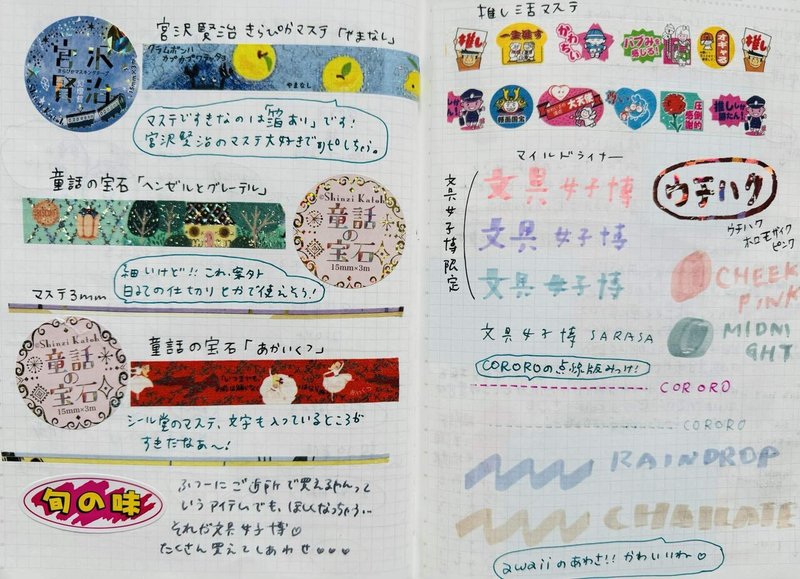 宮沢賢治 きらぴかマステ「やまなし」
宮沢
きらぴかマスキングテープ
賢治
クラムボンハ
カプカプワラッタヨ
やまなし
マステですきなのは「箔あり」です!
宮沢賢治のマステ大好きで
童話の宝石「ヘンゼルとグレーテル」
©Shinzi Katoh
童話
の
宝石
15mm×3m
細いけど!!これ、案外
目次の仕切りとかで使えそう!
マステ3mm
©Shinzi Katoh
童話
の
宝石
15mm×3m
童話の宝石「あかいくつ」
シール堂のマステ、文字も入っているところが
すきだなあ〜!
旬の味
ふつーにご近所で買えるやんって
いうアイテムでも、ほしくなっちゃう…
それが文具女子博♡
たくさん買えてしあわせ♡♡♡
推し活マステ
推し
一生推す
かわちい
バブみを感じる!
オギャる
推し
部長国宝
大天使
圧倒的感謝
推ししか勝たん!
マイルドライナー
文具女子博限定
文具女子博
文具女子博
文具女子博
文具女子博 SARASA
ウチハク
ウチハク
ホロモザイク
ピンク
CHEEK
PINK
MIDNI
GHT
COROROの点線版みっけ!
CORORO
CORORO
RAINDROP
CHAILATE
awaiiのあわさ!!かわいいね♡